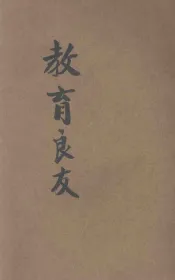 教育良友